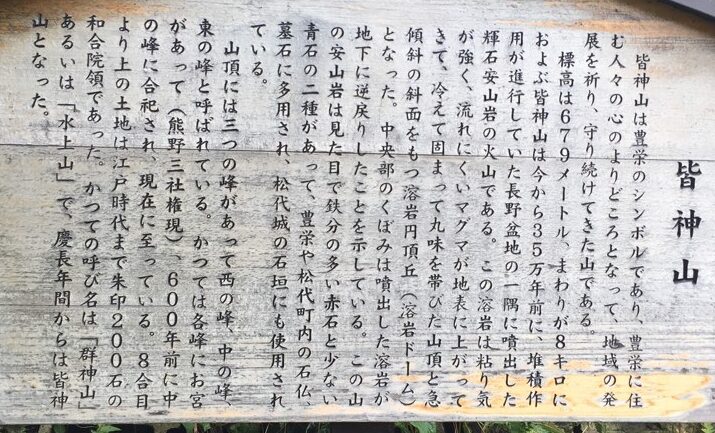 皆神山
皆神山は豊栄のシンボルであり、豊栄に住
む人々の心のよりどころとなって、地域の発
展を祈り、守り続けてきた山である。
標高は679メートル、まわりが8キロに
およぶ皆神山は今から35万年前に、堆積作
用が進行していた長野盆地の一隅に噴出した
輝石安山岩の火山である。この溶岩は粘り気
が強く、流れにくいマグマが地表に上がって
きて、冷えて固まって丸味を帯びた山頂と急
傾斜の斜面をもつ溶岩円頂丘(溶岩ドーム)
となった。中央部のくぼみは噴出した溶岩が
地下に逆戻りしたことを示している。この山
の安山岩は見た目で鉄分の多い赤石と少ない
青石の二種があって、豊栄や松代町内の石仏、
墓石に多用され、松代城の石垣にも使用され
ている。
山頂には三つの峰があって西の峰、中の峰、
東の峰と呼ばれている。かつては各峰にお宮
があって(熊野三社権現)、600年前に中
の峰に合祀され、現在に至っている。8合目
より上の土地は江戸時代まで朱印200石の
和合院領であった。かつての呼び名は「群神山」
あるいは「水上山」で、慶長年間からは皆神
山となった。